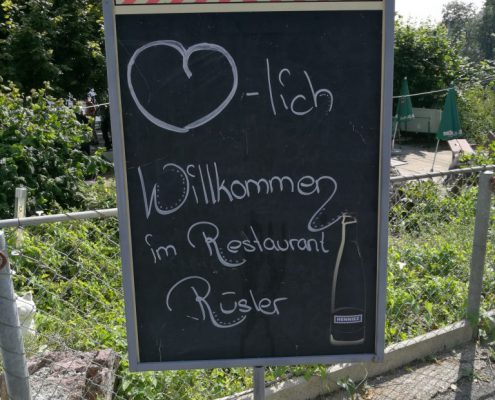 -lich
Willkommen
im Restaurant
Rüsler
HENNIEZ